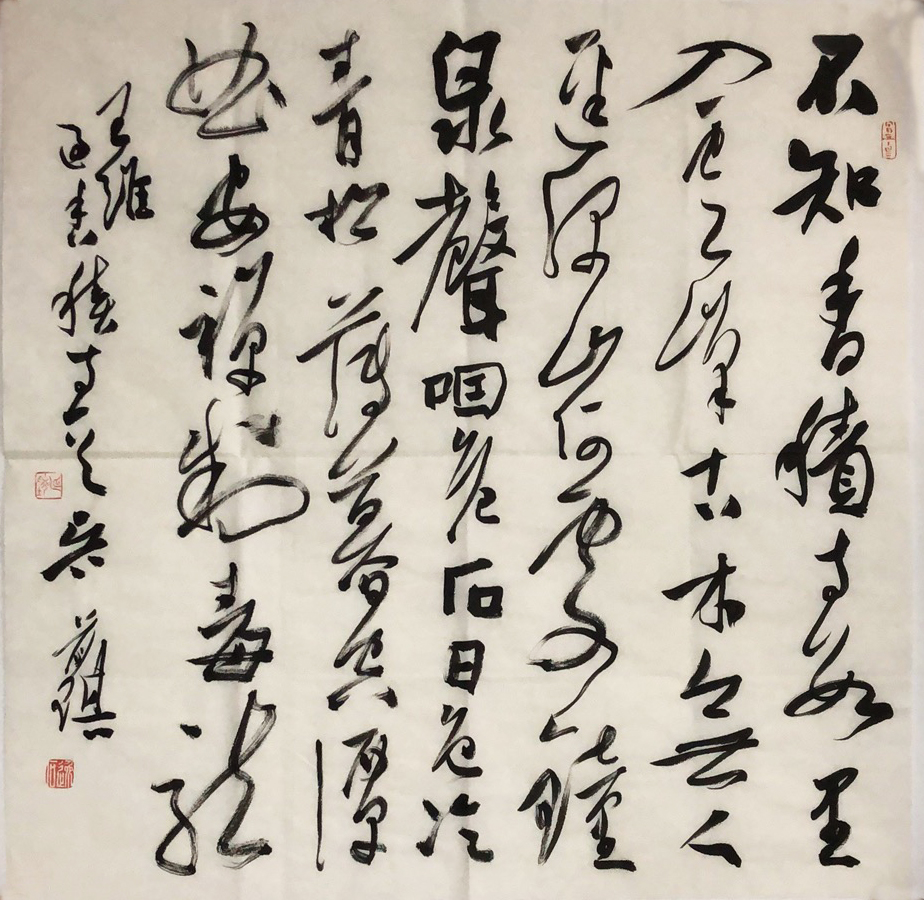 不知香積寺数里
入雲峰古木無人
逕深山何處鐘
泉聲咽危石日色冷
青松薄暮空潭
曲安禪制毒龍
王維
過香積寺